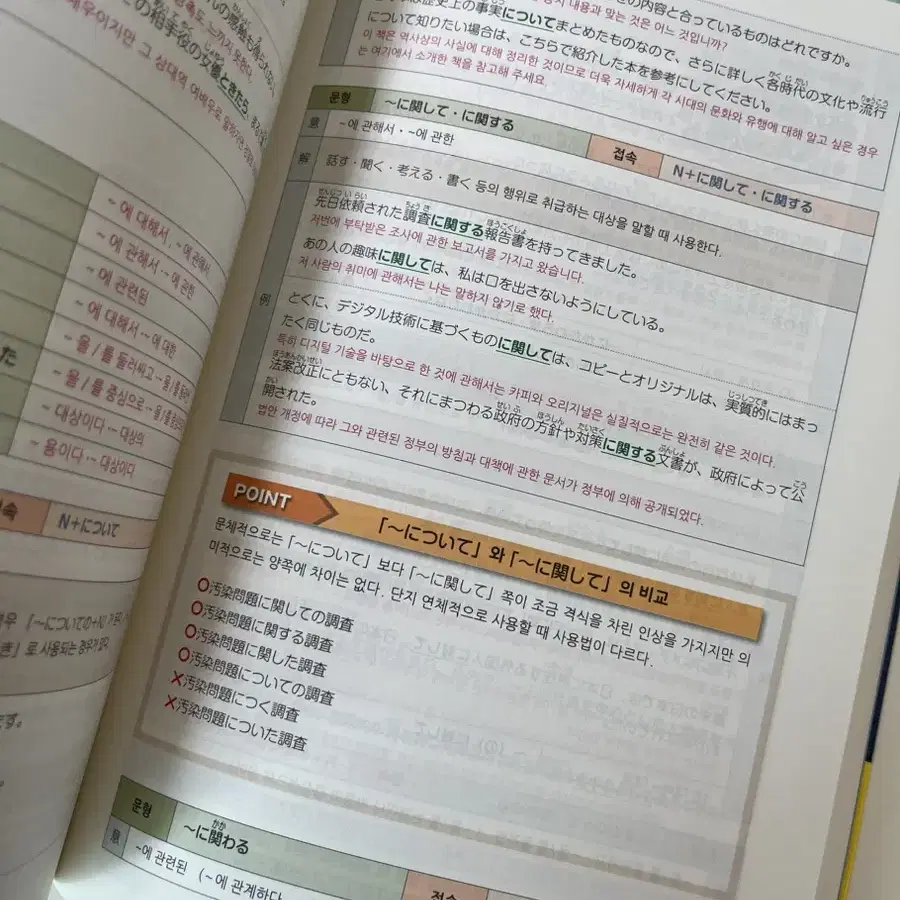 この相手役の女優ときたら
배우이지만 그 상대역 여배우로 말할
~에 대해서, ~에 관해서
~에 관해서 … ~에 관한
~에 관련된
~에 대해서 … ~에 대한
~을/를 둘러싸고 … ~을/를 둘러싼
~을/를 중심으로 … ~을/를 중심으로
~대상이다 … 대상의
~용이다 … 대상이다
접속
N+について
내용과 맞는 것은 어느 것입니까?
の内容と合っているものはどれですか。
歴史上の事実についてまとめたものなので、さらに詳しく各時代の文化や流行
について知りたい場合は、こちらで紹介した本を参考にしてください。
이 책은 역사상의 사실에 대해 정리한 것이므로 더욱 자세하게 각 시대의 문화와 유행에 대해 알고 싶은 경우
는 여기에서 소개한 책을 참고해 주세요.
문형
~に関して・に関する
意
~에 관해서・~에 관한
접속
N+に関して・に関する
解
話す・聞く・考える・書く 등의 행위로 취급하는 대상을 말할 때 사용한다.
例
先日依頼された調査に関する報告書を持ってきました。
저번에 부탁받은 조사에 관한 보고서를 가지고 왔습니다.
あの人の趣味に関しては、私は口を出さないようにしている。
저 사람의 취미에 관해서는 나는 말하지 않기로 했다.
とくに、デジタル技術に基づくものに関しては、コピーとオリジナルは、実質的にはまっ
たく同じものだ。
특히 디지털 기술을 바탕으로 한 것에 관해서는 카피와 오리지널은 실질적으로는 완전히 같은 것이다.
法案改正にともない、それにまつわる政府の方針や対策に関する文書が、政府によって公
開された。
법안 개정에 따라 그와 관련된 정부의 방침과 대책에 관한 문서가 정부에 의해 공개되었다.
POINT
「~について」와 「~に関して」의 비교
문체적으로는 「~について」보다 「~に関して」쪽이 조금 격식을 차린 인상을 가지지만 의
미적으로는 양쪽에 차이는 없다. 단지 연체적으로 사용할 때 사용법이 다르다.
○汚染問題に関しての調査
○汚染問題に関する調査
○汚染問題に関した調査
○汚染問題についての調査
×汚染問題につく調査
×汚染問題についた調査
문형
~に関わる
意
~에 관련된 (~에 관계하다
접속